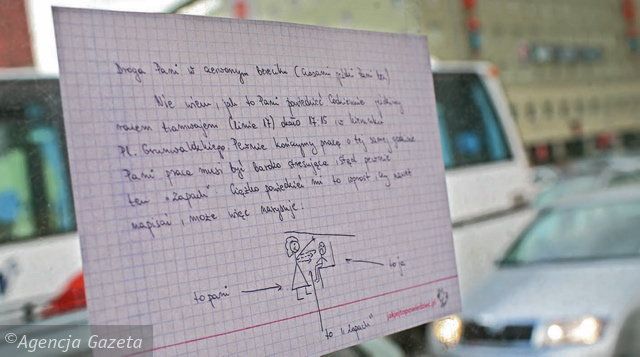 Droga Pani w czerwonym berecie (czasami żółci Pani też)
Nie wiem, jak to Pani powiedzieć. Codziennie jeździmy
razem tramwajem (linia 17) około 17.15 w kierunku
Pl. Grunwaldzkiego. Pewnie kończymy pracę o tej samej godzinie.
Pani praca musi być bardzo stresująca, stąd pewnie
ten "zapach". Ciężko powiedzieć mi to wprost, czy nawet
napisać, może więc narysuję:
to pani
to ja
to "zapach"
jakjejtopowiedziec.pl
©Agencja Gazeta